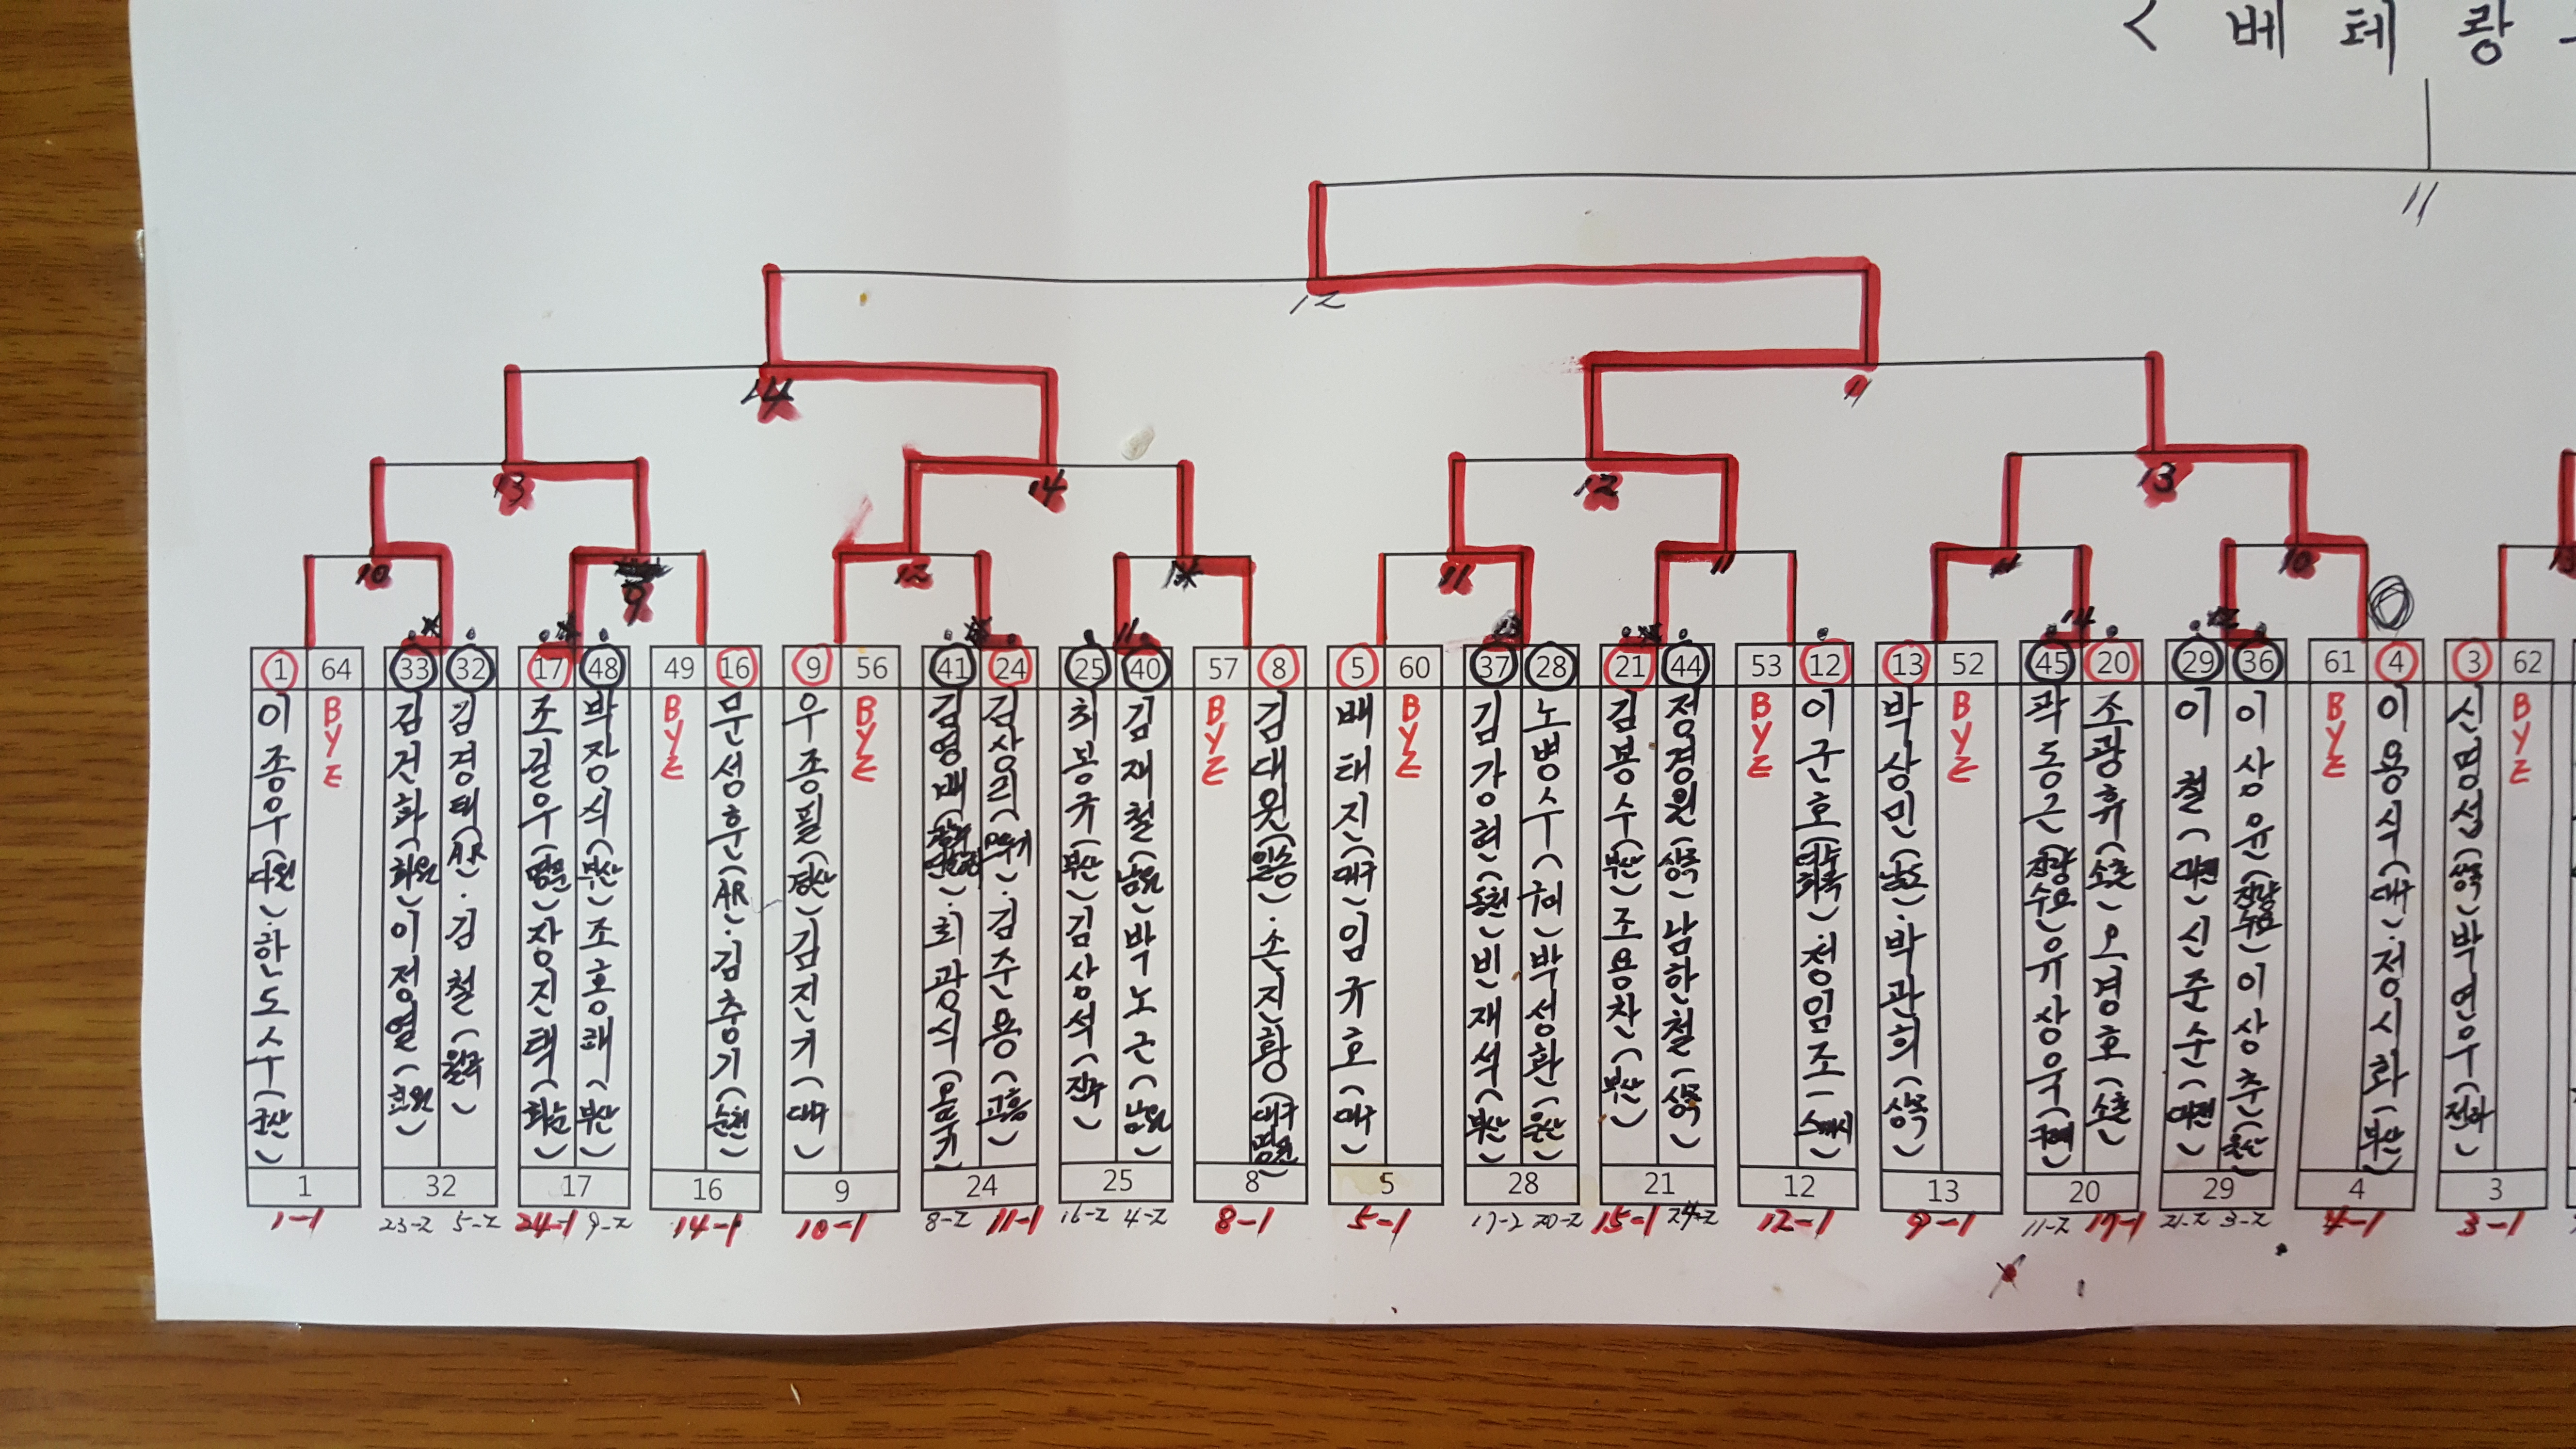 < 베 테 랑
11
12
14 11
13 14 12 13
10 9 12 11 11 10
11 14 12
1 64 33 32 17 48 49 16 9 56 41 24 25 40 57 8 5 60 37 28 21 44 53 12 13 52 45 20 29 36 61 4 3 62
이종우(다원)·한도수(군산)
BYE
김건화(화원)이정열(화원)
김경태(AR)·김철(월곡)
조길우(명문)장진택(화남)
박장식(부산)조홍래(부산)
BYE
문성훈(AR)·김충기(순천)
우종필(경산)김진기(대구)
BYE
김영배()·최광식()
김상리()·김준용(고흥)
최봉규(부산)김상석(진주)
김재철(남원)박노근(남원)
BYE
김대원(일송)·손진황(대구)
배태진(대구)임규호(대구)
BYE
김강현(동천)빈재석(부산)
노병수(구미)박성환(울산)
김봉수(부산)조용찬(부산)
정경원(상록)남하철(상록)
BYE
이군호(여수)·정임조()
박상민(남도)·박관희(상록)
BYE
곽동근(진량수요)유상욱()
조광휴(소촌)오경호(소촌)
이철(대전)신준수(대전)
이상윤(진량수요)이상추(울산)
BYE
이용식(대구)·정시화(부산)
신명섭(상록)박연우(전라)
BYE
1 32 17 16 9 24 25 8 5 28 21 12 13 20 29 4 3
1-1 23-2 5-2 24-1 9-2 14-1 10-1 8-2 11-1 16-2 4-2 8-1 5-1 17-2 20-2 15-1 24-2 12-1 9-1 11-2 17-1 21-2 3-2 4-1 3-1